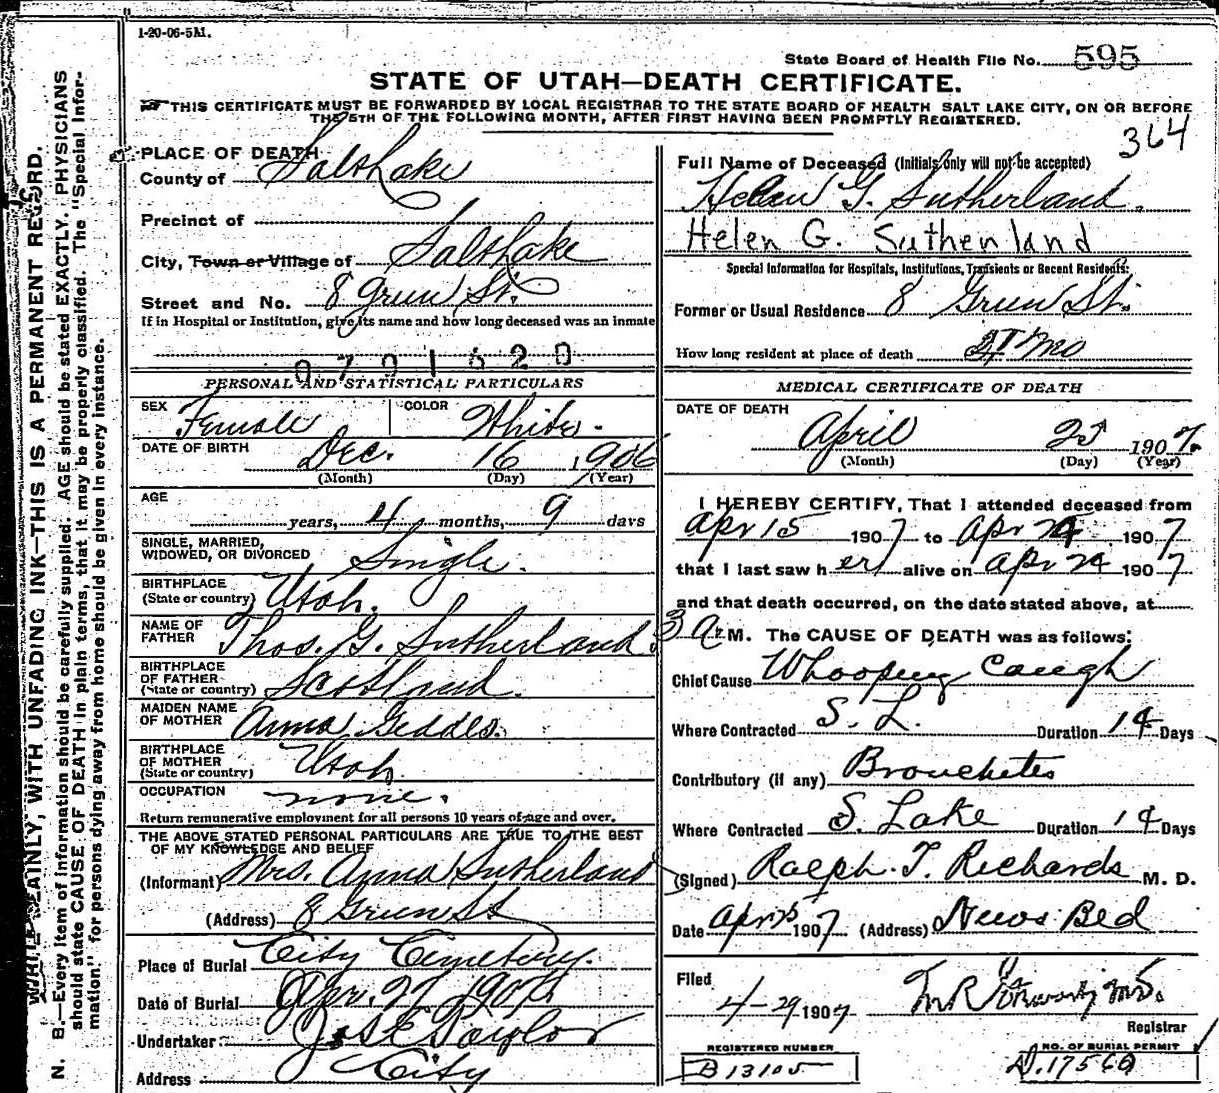 1-20-06-5M.
State Board of Health File No. 595
STATE OF UTAH—DEATH CERTIFICATE.
THIS CERTIFICATE MUST BE FORWARDED BY LOCAL REGISTRAR TO THE STATE BOARD OF HEALTH SALT LAKE CITY, ON OR BEFORE
THE 5TH OF THE FOLLOWING MONTH, AFTER FIRST HAVING BEEN PROMPTLY REGISTERED.
364
WRITE PLAINLY, WITH UNFADING INK—THIS IS A PERMANENT RECORD.
N. B.—Every item of information should be carefully supplied. AGE should be stated EXACTLY. PHYSICIANS
should state CAUSE OF DEATH in plain terms, that it may be properly classified. The "Special Infor-
mation." for persons dying away from home should be given in every instance.
PLACE OF DEATH
County of Salt Lake
Precinct of
City, Town or Village of Salt Lake
Street and No. 8 Grun St.
If in Hospital or Institution, give its name and how long deceased was an inmate
0791620
PERSONAL AND STATISTICAL PARTICULARS
SEX Female COLOR White.
DATE OF BIRTH Dec. 16 1906
(Month) (Day) (Year)
AGE
years, 4 months, 9 days
SINGLE, MARRIED,
WIDOWED, OR DIVORCED Single.
BIRTHPLACE
(State or country) Utah.
NAME OF
FATHER Thos. G. Sutherland.
BIRTHPLACE
OF FATHER
(State or country) Scotland.
MAIDEN NAME
OF MOTHER Anna Geddes.
BIRTHPLACE
OF MOTHER
(State or country) Utah
OCCUPATION none.
Return remunerative employment for all persons 10 years of age and over.
THE ABOVE STATED PERSONAL PARTICULARS ARE TRUE TO THE BEST
OF MY KNOWLEDGE AND BELIEF
(Informant) Mrs. Anna Sutherland
(Address) 8 Grun St
Place of Burial City Cemetery.
Date of Burial Apr. 27 1907
Undertaker Jos E Taylor
Address City
Full Name of Deceased (Initials only will not be accepted)
Helen G. Sutherland.
Helen G. Suthenland
Special Information for Hospitals, Institutions, Transients or Recent Residents:
Former or Usual Residence 8 Grun St.
How long resident at place of death mo
MEDICAL CERTIFICATE OF DEATH
DATE OF DEATH
April 25 1907.
(Month) (Day) (Year)
I HEREBY CERTIFY, That I attended deceased from
Apr 15 1907 to Apr 24 1907
that I last saw her alive on Apr 24 1907
and that death occurred, on the date stated above, at
3 A. M. The CAUSE OF DEATH was as follows:
Chief Cause Whooping Caugh
Where Contracted S. L. Duration 14 Days
Contributory (if any) Bronchetes
Where Contracted S. Lake Duration 14 Days
(Signed) Ralph. T. Richards M. D.
Date Apr 25 1907 (Address) News Bld
Filed
4-29 1907
Registrar
REGISTERED NUMBER
B 13105
NO. OF BURIAL PERMIT
D.17560